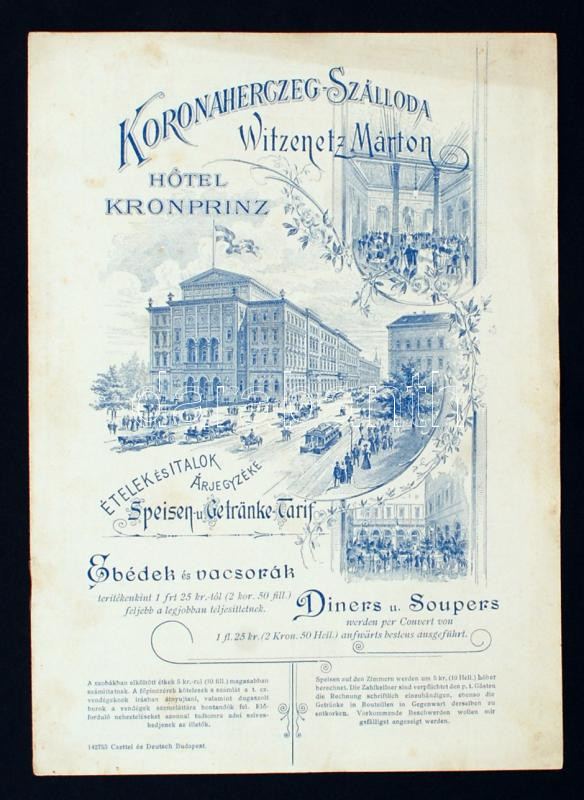 KORONAHERCZEG-SZÁLLODA
Witzenetz Márton
HÔTEL
KRONPRINZ
ÉTELEK ÉS ITALOK
ÁRJEGYZÉKE
Speisen- u. Getränke-Tarif
Ebédek és vacsorák
terítékenkint 1 frt 25 kr.-tól (2 kor. 50 fill.)
feljebb a legjobban teljesíttetnek.
Diners u. Soupers
werden per Couvert von
1 fl. 25 kr. (2 Kron. 50 Hell.) aufwärts bestens ausgeführt.
A szobákban elköltött étkek 5 kr.-ral (10 fill.) magasabban
számíttatnak. A főpinczérek kötelesek a számlát a t. cz.
vendégeknek írásban átnyujtani, valamint dugaszolt
borok a vendégek szemeláttára bontandók fel. Elő-
forduló nehezteléseket azonnal tudtomra adni szíves-
kedjenek az illetők.
Speisen auf den Zimmern werden um 5 kr. (10 Hell.) höher
berechnet. Die Zahlkellner sind verpflichtet den p. t. Gästen
die Rechnung schriftlich einzuhändigen, ebenso die
Getränke in Bouteillen in Gegenwart derselben zu
entkorken. Vorkommende Beschwerden wollen mir
gefälligst angezeigt werden.
142753 Czettel és Deutsch Budapest.